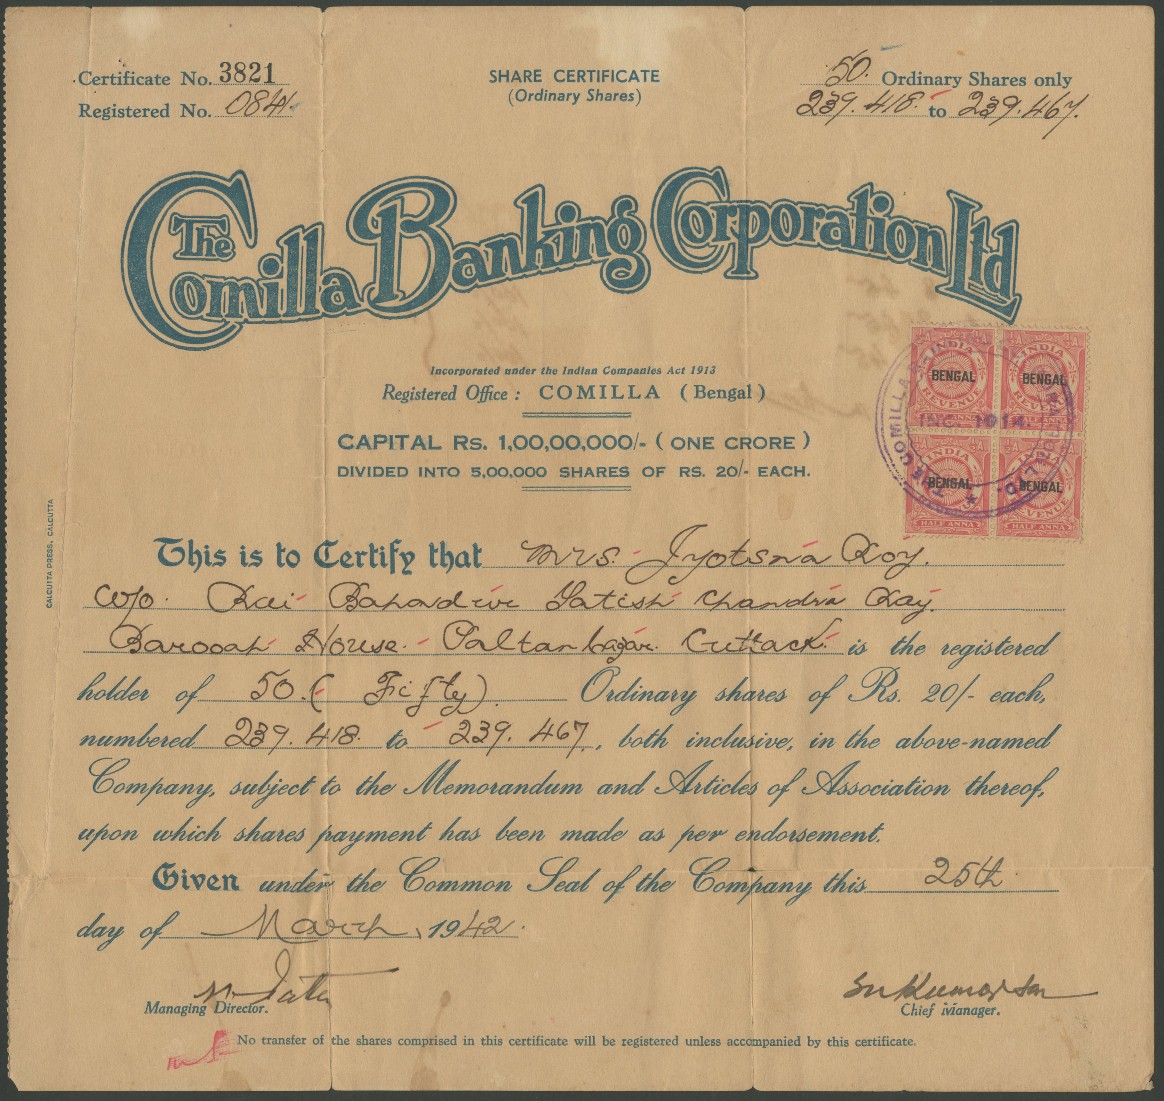 Certificate No. 3821
Registered No. 0841
SHARE CERTIFICATE
(Ordinary Shares)
50. Ordinary Shares only
239.418 to 239.467.
The Comilla Banking Corporation Ltd
Incorporated under the Indian Companies Act 1913
Registered Office : COMILLA ( Bengal )
CAPITAL RS. 1,00,00,000/- ( ONE CRORE )
DIVIDED INTO 5,00,000 SHARES OF RS. 20/- EACH.
INDIA INDIA
BENGAL BENGAL
REVENUE REVENUE
INC. 1914.
INDIA INDIA
BENGAL BENGAL
REVENUE REVENUE
HALF ANNA HALF ANNA
THE COMILLA LTD.
CALCUTTA PRESS, CALCUTTA
This is to Certify that Mrs. Jyotsna Roy.
W/o. Rai Bahadur Satish Chandra Ray
Barooah House. Paltan bazar. Cuttack. is the registered
holder of 50. ( Fifty ) Ordinary shares of Rs. 20/- each,
numbered 239.418. to 239.467, both inclusive, in the above-named
Company, subject to the Memorandum and Articles of Association thereof,
upon which shares payment has been made as per endorsement.
Given under the Common Seal of the Company this 25th
day of March, 1942.
Managing Director.
Chief Manager.
No transfer of the shares comprised in this certificate will be registered unless accompanied by this certificate.